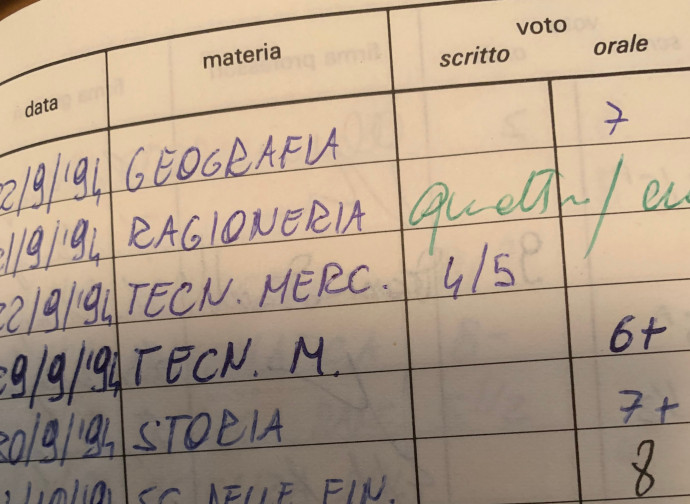 voto
data materia scritto orale
22/9/'94 GEOGRAFIA 7
21/9/'94 RAGIONERIA quattro/
22/9/'94 TECN. MERC. 4/5
29/9/'94 TECN. M. 6+
30/9/'94 STORIA 7+
SC. DELLE FIN. 8